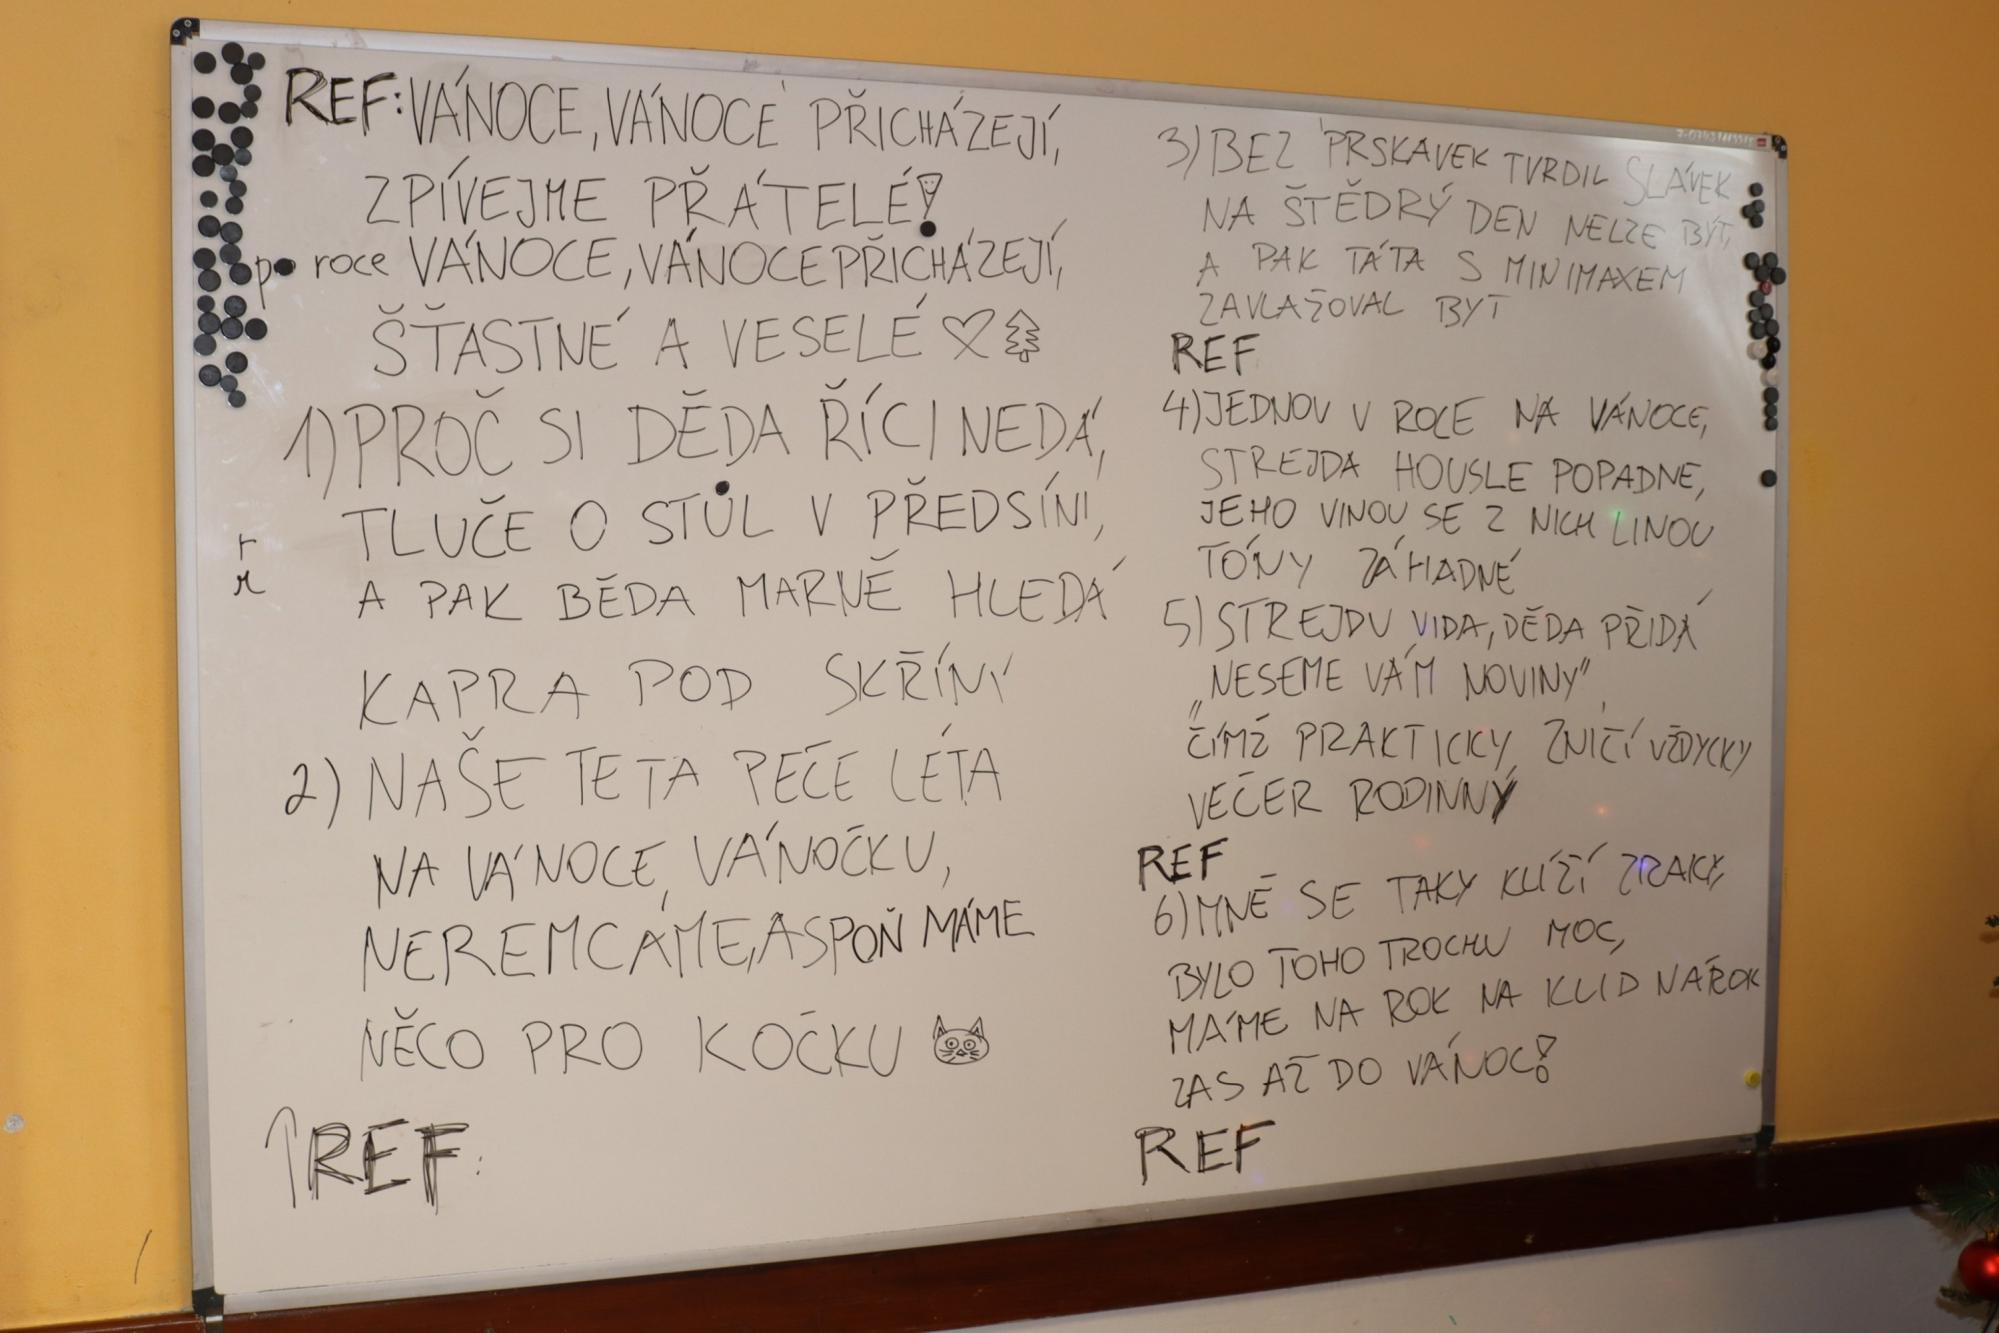 REF: VÁNOCE, VÁNOCE PŘICHÁZEJÍ,
ZPÍVEJME PŘÁTELÉ!
po roce VÁNOCE, VÁNOCE PŘICHÁZEJÍ,
ŠŤASTNÉ A VESELÉ
1) PROČ SI DĚDA ŘÍCI NEDÁ,
TLUČE O STŮL V PŘEDSÍNI,
A PAK BĚDA MARNĚ HLEDÁ
KAPRA POD SKŘÍNÍ
2) NAŠE TETA PEČE LÉTA
NA VÁNOCE, VÁNOČKU,
NEREMCÁME, ASPOŇ MÁME
NĚCO PRO KOČKU
REF:
r
r
3) BEZ PRSKAVEK TVRDIL SLÁVEK
NA ŠTĚDRÝ DEN NELZE BÝT,
A PAK TÁTA S MINIMAXEM
ZAVLAŽOVAL BYT
REF
4) JEDNOU V ROCE NA VÁNOCE,
STREJDA HOUSLE POPADNE,
JEHO VINOU SE Z NICH LINOU
TÓNY ZÁHADNÉ
5) STREJDU VIDA, DĚDA PŘIDÁ
„NESEME VÁM NOVINY“,
ČÍMŽ PRAKTICKY ZNIČÍ VŽDYCKY
VEČER RODINNÝ
REF
6) MNĚ SE TAKY KLÍŽÍ ZRAKY,
BYLO TOHO TROCHU MOC,
MÁME NA ROK NA KLID NÁROK
ZAS AŽ DO VÁNOC!
REF